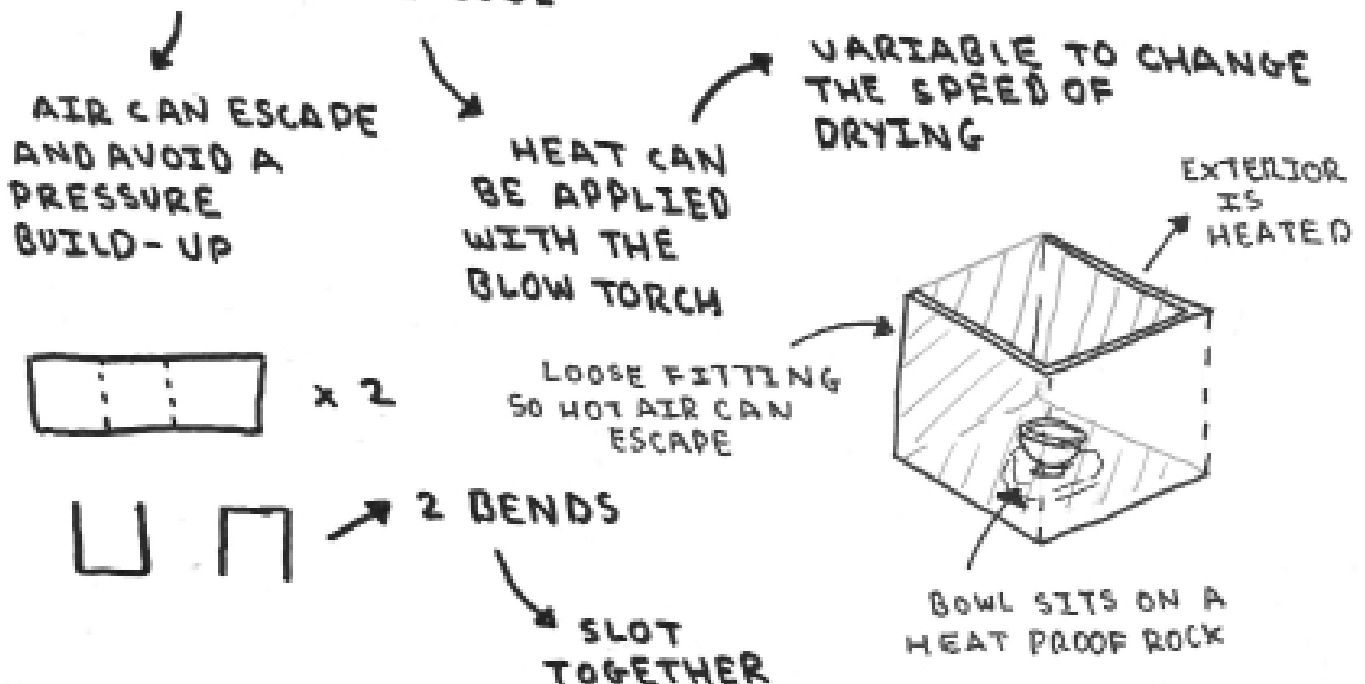 AIR CAN ESCAPE
AND AVOID A
PRESSURE
BUILD-UP
HEAT CAN
BE APPLIED
WITH THE
BLOW TORCH
VARIABLE TO CHANGE
THE SPEED OF
DRYING
EXTERIOR
IS
HEATED
x 2
LOOSE FITTING
SO HOT AIR CAN
ESCAPE
2 BENDS
SLOT
TOGETHER
BOWL SITS ON A
HEAT PROOF ROCK